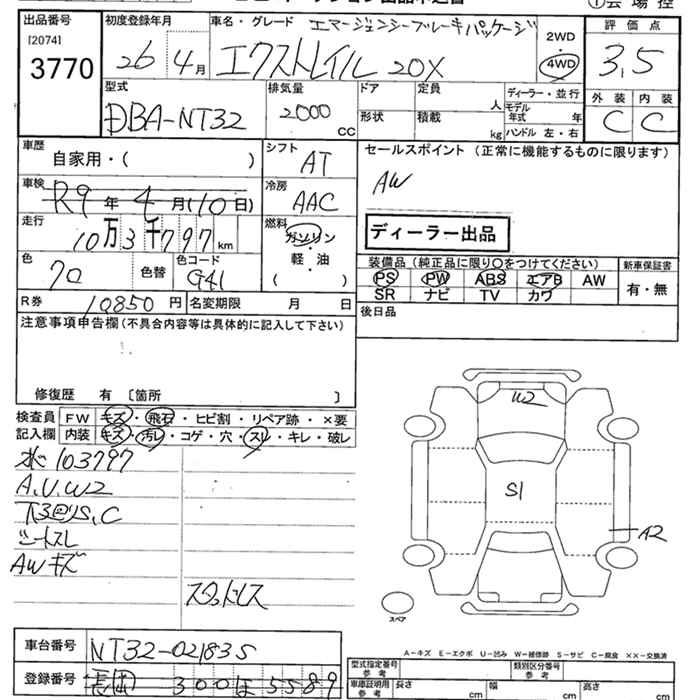 出品番号 初度登録年月 車名・グレード エマージェンシーブレーキパッケージ 2WD ・ 4WD 評価点
[2074]
3770 26年 4月 エクストレイル 20X 3.5
型式 排気量 ドア 定員 人 ディーラー・並行 外装 内装
DBA-NT32 2000 cc 形状 積載 kg モデル年式 年 ハンドル 左・右 C C
車歴 自家用・( ) シフト AT セールスポイント (正常に機能するものに限ります)
車検 R9年 4月(10日) 冷房 AAC AW
走行 10万3千797km 燃料 ガソリン・軽・油 ( ) ディーラー出品
色 クロ 色替 色コード G41 装備品 (純正品に限り○をつけてください) 新車保証書
PS PW ABS エアB AW 有・無
R券 10850円 名変期限 月 日 SR ナビ TV カワ
注意事項申告欄 (不具合内容等は具体的に記入して下さい) 後日品
修復歴 有 〔箇所 〕
検査員 FW キズ・飛石・ヒビ割・リペア跡・×要
記入欄 内装 キズ・汚レ・コゲ・穴・スレ・キレ・破レ
W2
水 103797
A.U.W2
S1
下回りS.C
A2
シートスレ
AWキズ
スタッドレス
スペア
A-キズ E-エクボ U-凹み W-補修跡 S-サビ C-腐食 ××-交換済
車台番号 NT32-021835
型式指定番号 参考 類別区分番号 参考
登録番号 300 ほ 5589
車庫証明用 参考 長さ cm 幅 cm 高さ cm